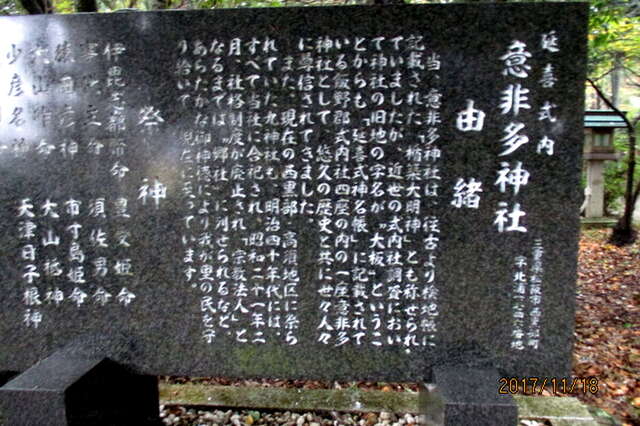 延喜式内
意非多神社
三重県松阪市西黒部町
由緒
当、意非多神社は、往古より検地帳に
記載された「楯築大明神」とも称せられ、
ていましたが、近世の式内社調査におい
て神社の旧地の字名が「大板」というこ
とからも「延喜式神名帳」に記載されて
いる飯野郡式内社四座の内の一座意非多
神社として、悠久の歴史と共に世々人々
に尊信されてきました。
また、現在の西黒部、高須地区に祭ら
れていた九神社も、明治四十年代には、
すべて当社に合祀され、昭和二十一年二
月、社格制度が廃止され「宗教法人」と
なるまでは「郷社」に列せられるなど、
あらたかな御神徳により我が里の民を守
り給いて現在に至っています。
祭神
伊毘志都幣命 豊受姫命
須佐男命
猿田彦神 市寸島姫命
大山咋命 大山祗神
少彦名命 天津日子根神
2017/11/18